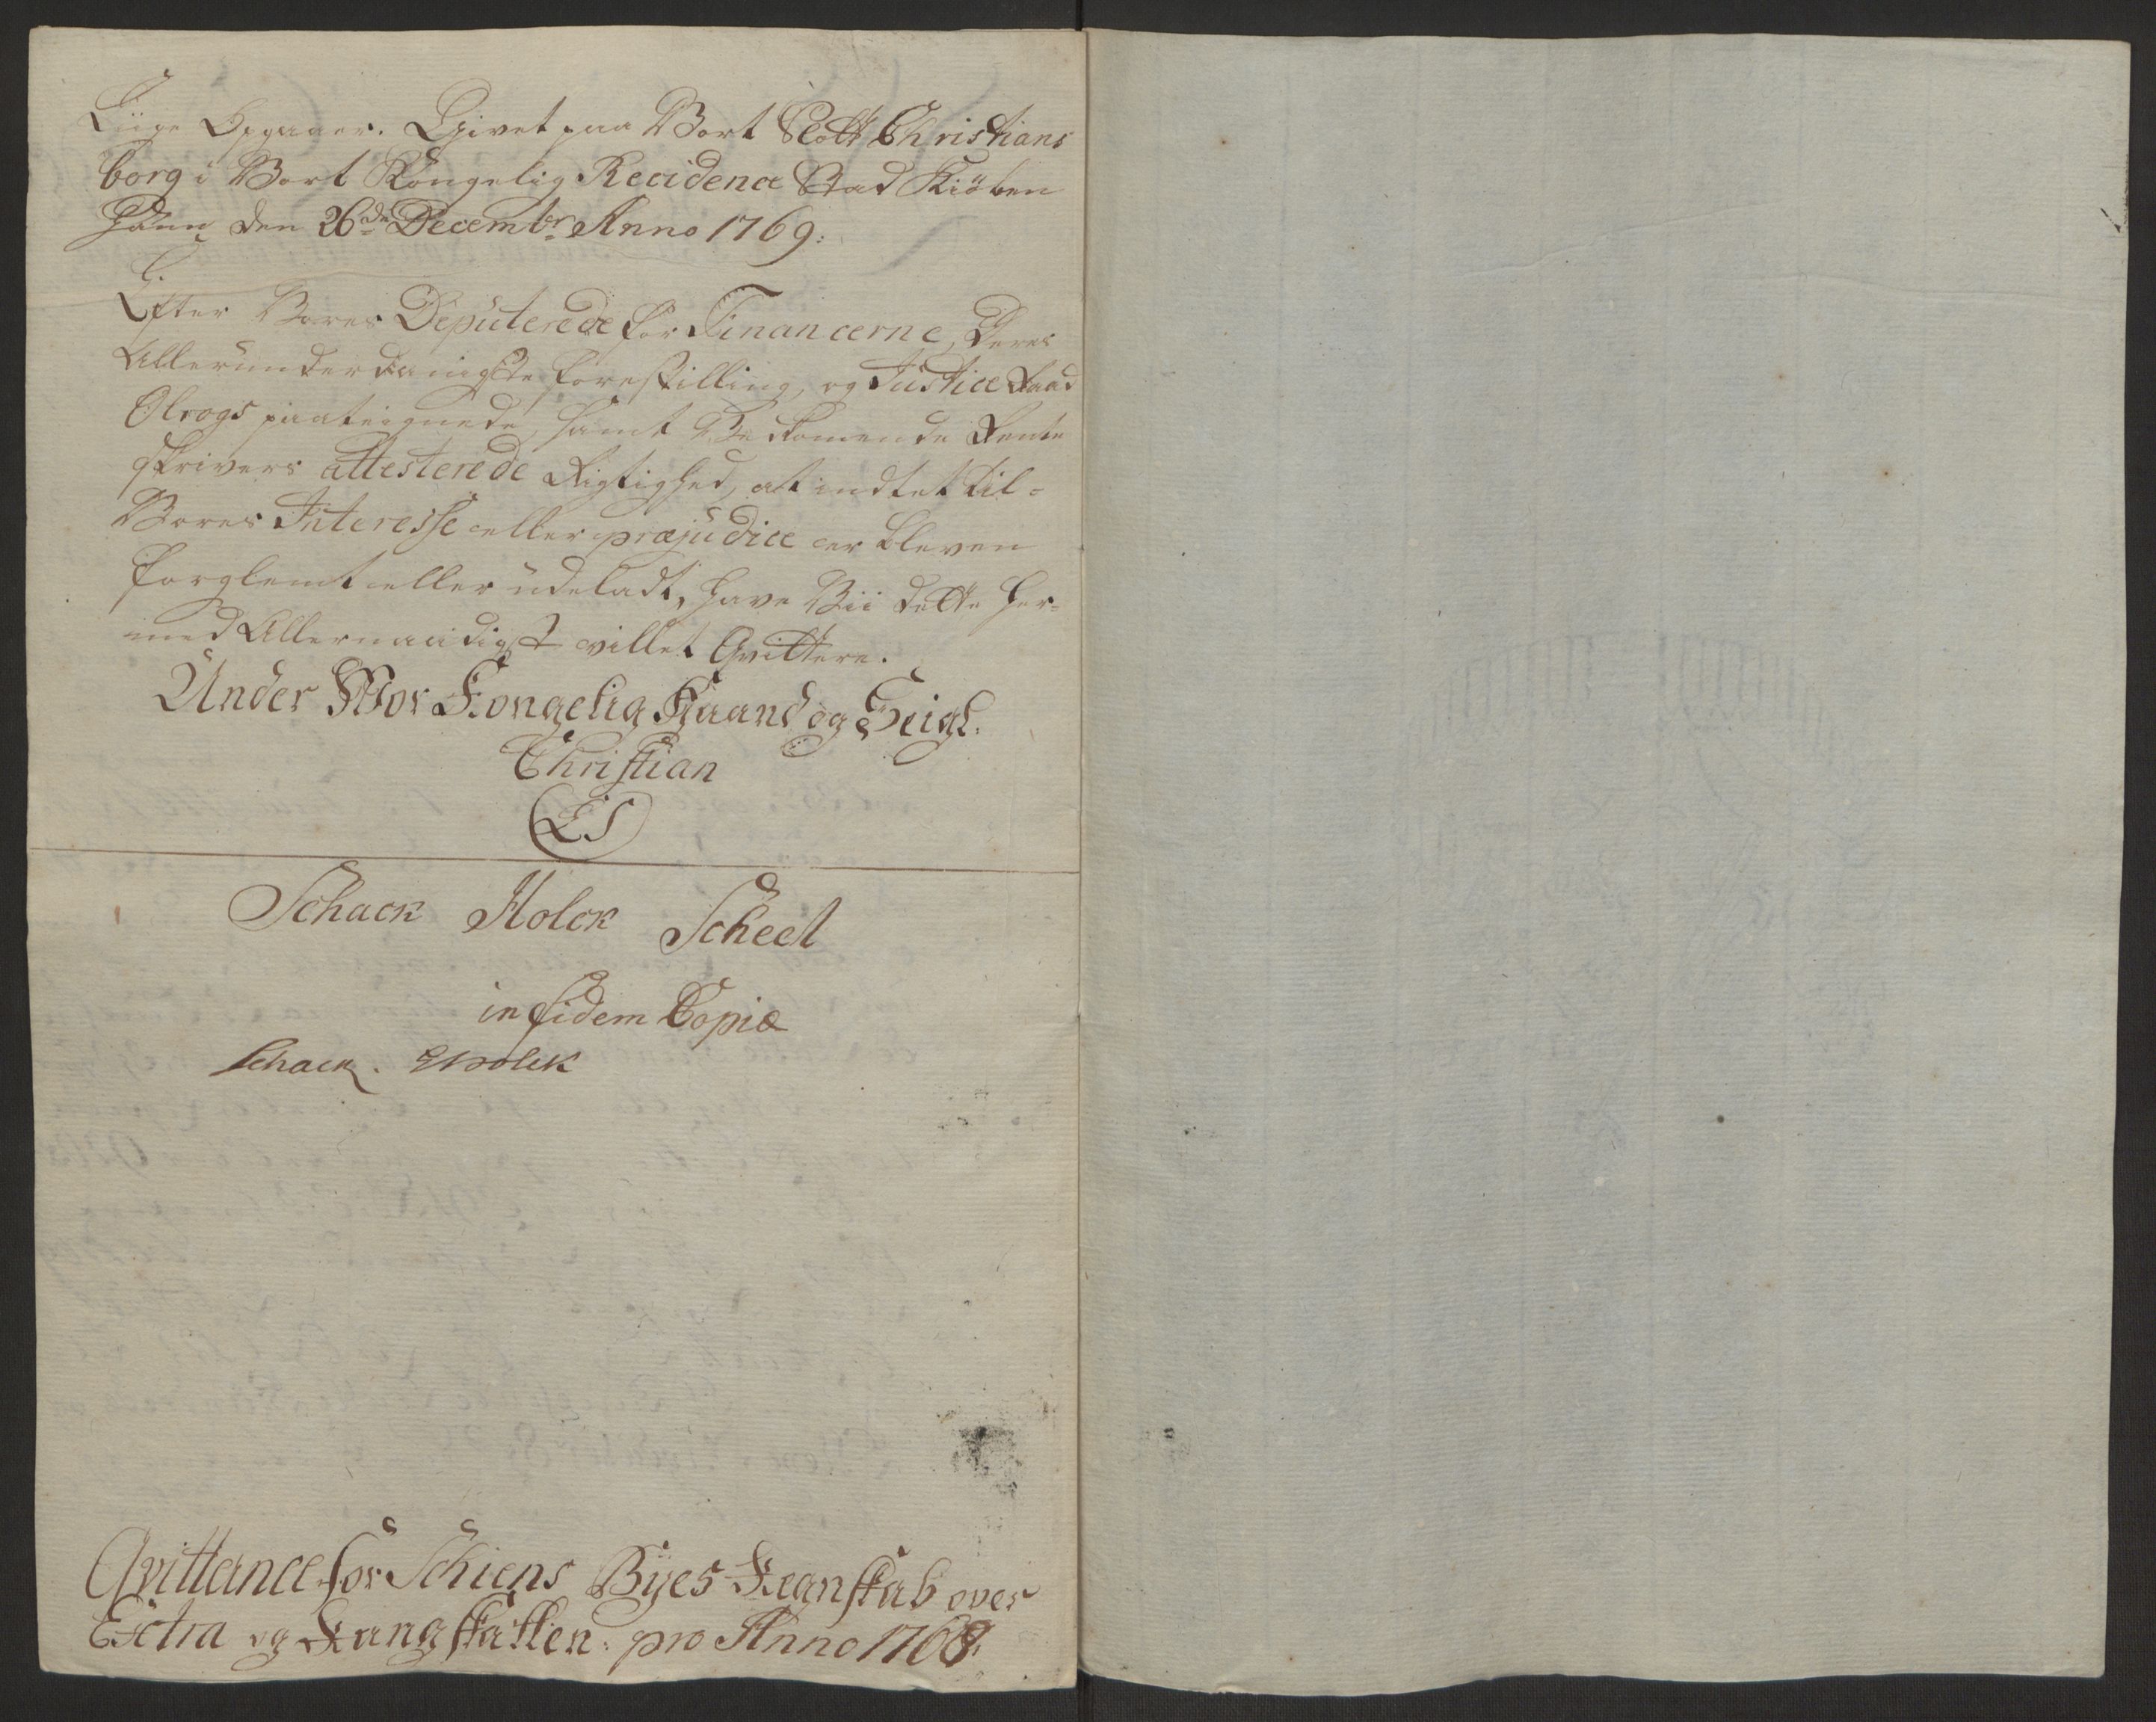 Liige Opgaaer. Givet paa Vort Slott Christians
borg i Vort Kongelig Recidence Stad Kiöben
hafn den 26de Decembr Anno 1769:
Efter Vores Deputerede for Financerne, Deres
Alleründerdanigste forestilling, og Justice Raad
Olrogs paateignede, samt Vedkomende Rente
skrivers attesterede Rigtighed, at indtet til-
Vores Interesse eller præjudice er bleven
forglemt eller üdeladt, have Vii dette her-
med Allernaadigst villet Qvittere.
Under Vor Kongelig Haand og Seigl.
Christian
LS
Schack Holck Scheel
in fidem Copiæ
Schack. Holck
Qvittance for Schiens Byes Regnskab over
Extra og Rangskatten pro Anno 1768